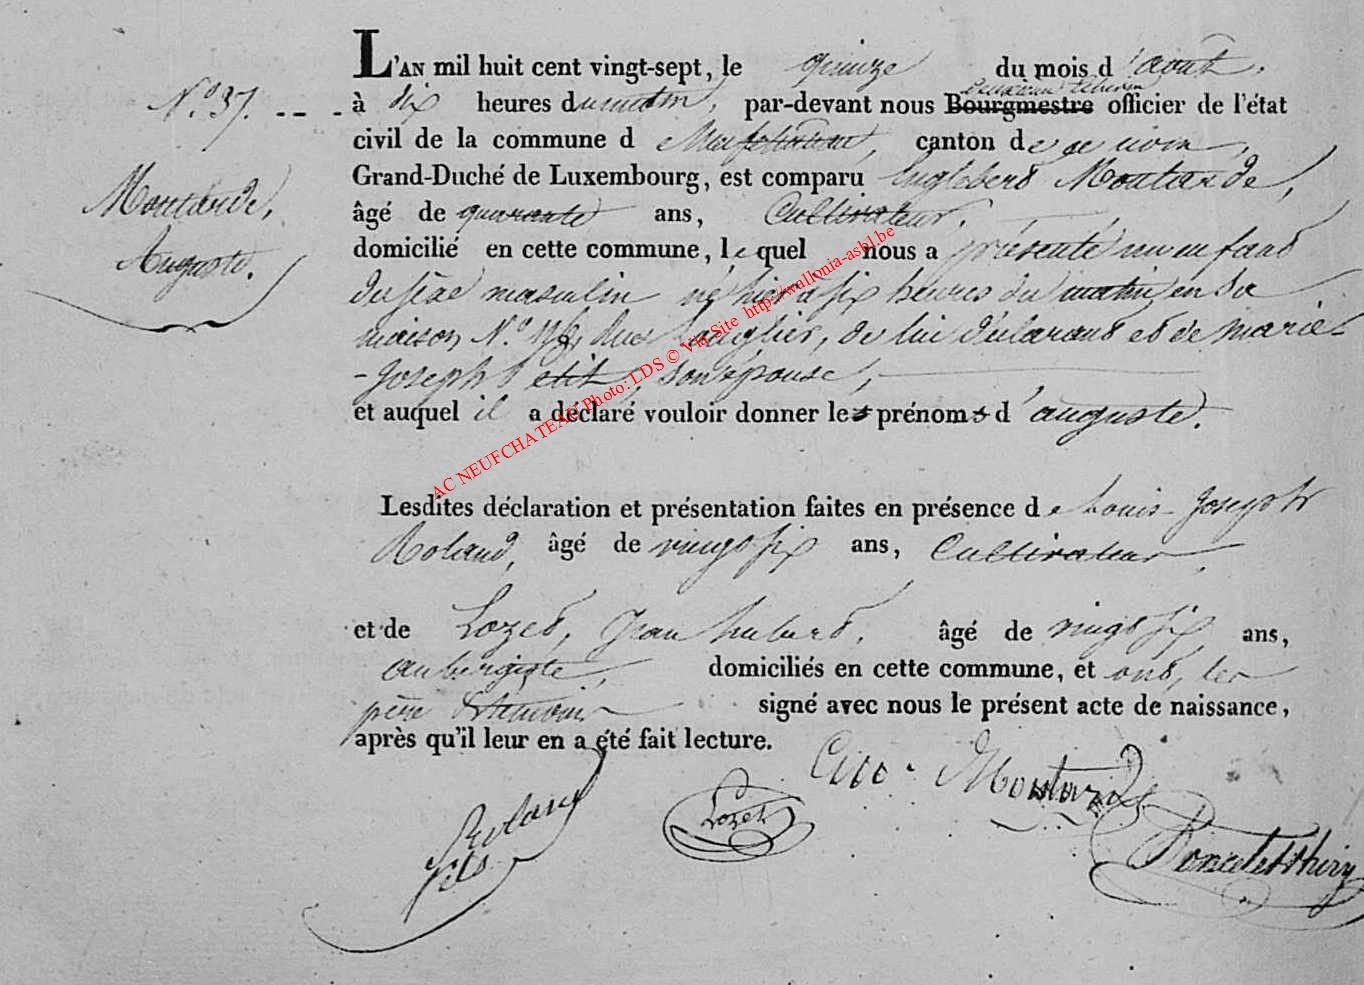 L'AN mil huit cent vingt-sept, le quinze du mois d'août,
N.° 37. à dix heures du matin, par-devant nous Bourgmestre officier de l'état
civil de la commune d canton de
Grand-Duché de Luxembourg, est comparu Englebert Moutarde,
Moutarde, Auguste.
âgé de quarante ans, Cultivateur,
domicilié en cette commune, lequel nous a présenté un enfant
du sexe masculin né hier à six heures du matin, en sa
maison N.° rue de lui déclarant et de Marie-
Joseph Petit, son épouse,
et auquel il a déclaré vouloir donner les prénoms d'auguste.
AC NEUFCHATEAU Photo: LDS © Via Site http://wallonia-asbl.be
Lesdites déclaration et présentation faites en présence de Louis Joseph
Roland, âgé de vingt six ans, Cultivateur,
et de Lozet, Jean hubert, âgé de vingt six ans,
aubergiste, domiciliés en cette commune, et ont, les
père et témoins signé avec nous le présent acte de naissance,
après qu'il leur en a été fait lecture.
Moutarde
Roland fils
Lozet